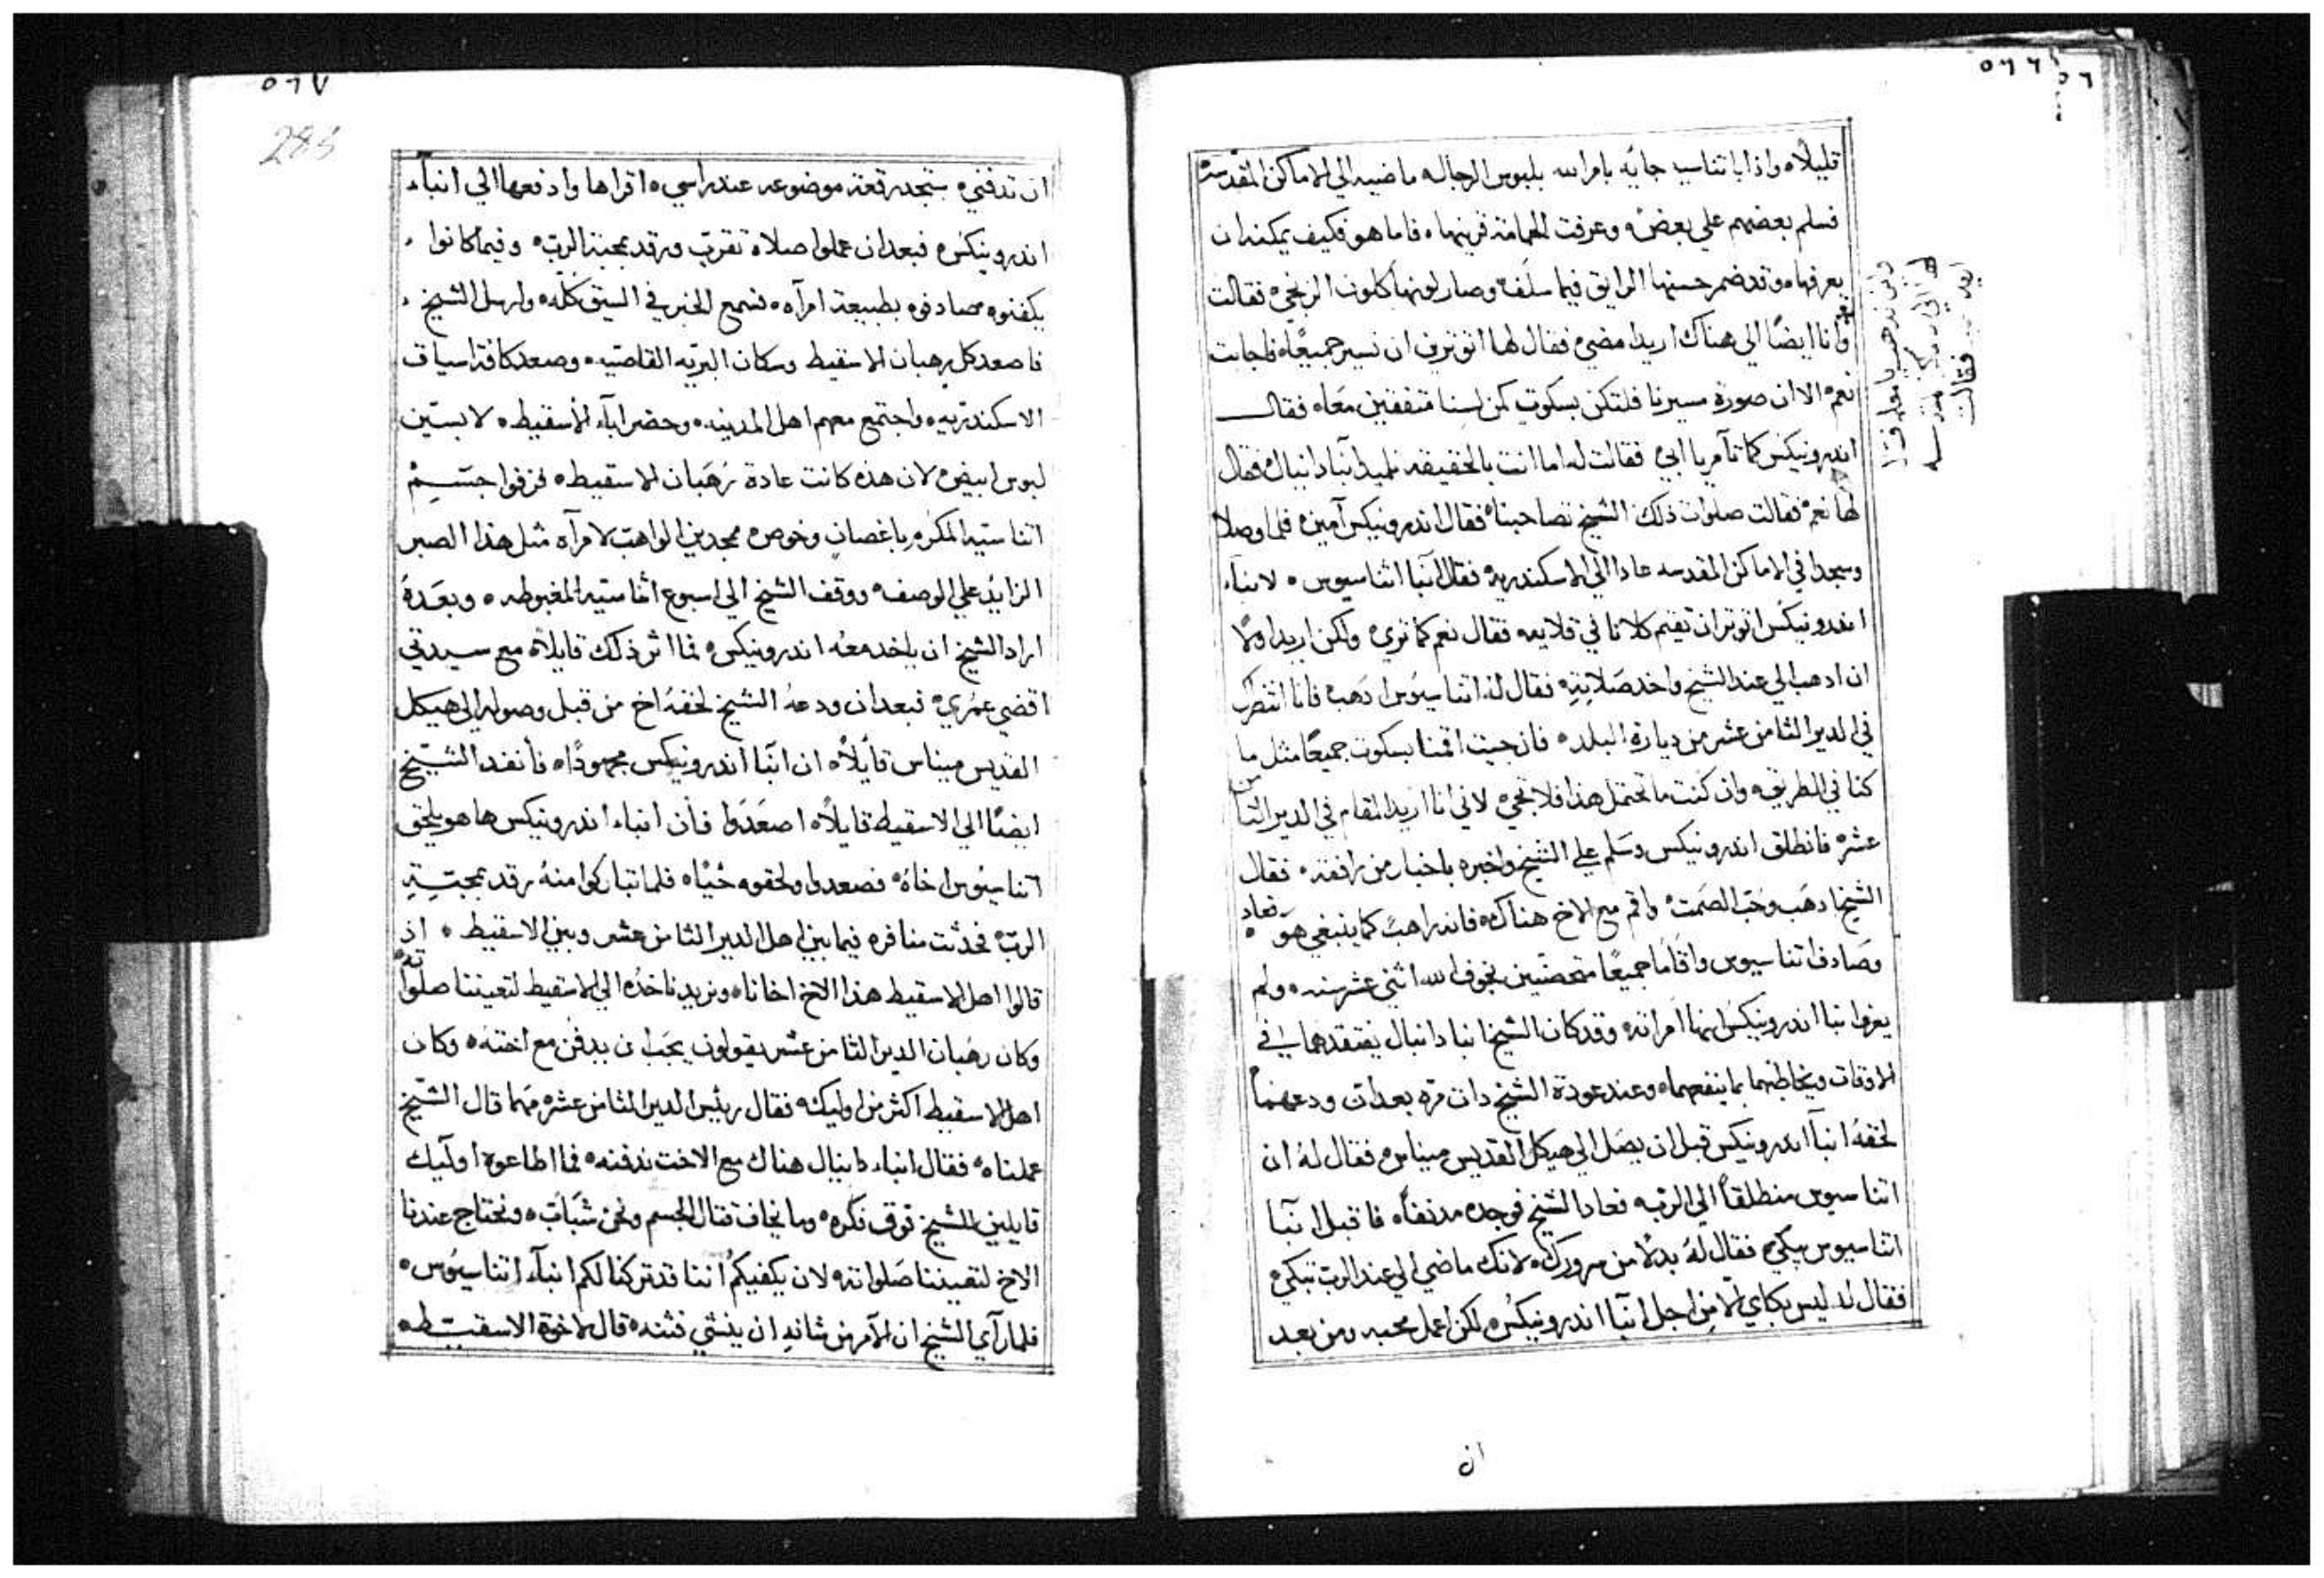 ٥٦٦
٥٦
قليلًا ه واذا باتناسيه جايه بامر الله بلبوس الرجال ه ماضيه الي الاماكن المقدسه
فسلم بعضهم علي بعض ه وعرفت الحمامة قرينها ه فاما هو فكيف يمكنه ان
يعرفها ه وقد ضمر حسنها الرايق فيما سلف ه وصار لونها كلون الزنجي ه فقالت
وانا ايضًا الي هناك اريد امضي فقال لها اتوثري ان نسير جميعًا ه فاجابت
نعم ه الا ان صورة مسيرنا فلتكن بسكوت كمن لسنا متفقين معًا ه فقال
اندرونيكس كما تآمر يا ابي فقالت له اما انت بالحقيقه تلميذ انبا دانيال فقال
لها نعم ه فقالت صلوات ذلك الشيخ تصاحبنا ه فقال اندرونيكس آمين ه فلما وصلا
وسجدا في الاماكن المقدسه عادا الي الاسكندريه فقال انبا اثناسيوس ه لانباء
اندرونيكس اتوتر ان تقيم كلانا في قلايه فقال نعم كما تري ه ولكن اريد اولًا
ان ادهب الي عند الشيخ واخد صلاته ه فقال له اتناسيوس ادهب ه فانا انتظرك
في الدير الثامن عشر من ديارة البلد ه فان جيت اقمنا بسكوت جميعًا مثل ما
كنا في الطريق ه وان كنت ما تحتمل هذا فلا تجي ه لاني انا اريد المقام في الدير الثامن
عشر ه فانطلق اندرونيكس وسلم علي الشيخ واخبره باخبار من رافقه ه فقال
الشيخ ادهب وحب الصمت ه واقم مع الاخ هناك ه فانه راهب كما ينبغي هو ه فعاد
وصادف اتناسيوس واقاما جميعًا متحصنين بخوف الله اثني عشر سنه ه ولم
يعرف انبا اندرونيكس انها امراته ه وقد كان الشيخ انبا دانيال يفتقدهما في
الاوقات ويخاطبهما بما ينفعهما ه وعند عودة الشيخ دات مره بعد ان ودعهما
لحقه انبآ اندرونيكس قبل ان يصل الي هيكل القديس ميناس ه فقال له ان
اتناسيوس منطلقًا الي الرب ه فعاد الشيخ فوجده مدنفًا ه فاقبل انبآ
اتناسيوس يبكي ه فقال له بدلًا من سرورك ه لانك ماضي الي عند الرب تبكي ه
فقال له ليس بكاي الا من اجل انبآ اندرونيكس ه لكن اعمل محبه ومن بعد
ان
واين تدهب يا معلم فقا
هذا الي الاماكن المقدسه
فقالت
٥٦٧
ان تدفني ه ستجد رقعة موضوعه عند راسي ه اقراها وادفعها الي انبآء
اندرونيكس ه فبعد ان عملوا صلاة تقرب ورقد بمحبة الرب ه وفيما كانوا
يكفنوه صادفوه بطبيعة امرآه ه فسمع الخبر في السيق كله ه وارسل الشيخ
فاصعد كل رهبان الاسقيط وسكان البريه القاصيه ه وصعد كافة اسياق
الاسكندريه ه واجتمع معهم اهل المدينه ه وحضر ابآء الاسقيط ه لابسين
لبوس ابيض ه لان هذه كانت عادة رهبان الاسقيط ه فزفوا جسم
اتناسيه المكرم باغصان وخوص ه ممجدين الواهب لامرآه مثل هذا الصبر
الزايد علي الوصف ه ووقف الشيخ الي اسبوع اثناسيه المغبوطه ه وبعده
اراد الشيخ ان ياخد معه اندرونيكس ه فما اثر ذلك قايلًا ه مع سيدتي
اقضي عمري ه فبعد ان ودعه الشيخ لحقه اخ من قبل وصوله الي هيكل
القديس ميناس قايلًا ه ان انبآ اندرونيكس مجهودًا ه فأنفد الشيخ
ايضًا الي الاسقيط قايلًا ه اصعدوا فان انباء اندرونيكس ها هو يلحق
اتناسيوس اخاه ه فصعدوا ولحقوه حيًا ه فلما تباركوا منه رقد بمحبة
الرب ه فحدثت منافره فيما بين اهل الدير الثامن عشر وبين الاسقيط ه اذ
قالوا اهل الاسقيط هذا الاخ اخانا ه ونريد ناخده الي الاسقيط لتعيننا صلواته
وكان رهبان الدير الثامن عشر يقولون يجب ان يدفن مع اخته ه وكان
اهل الاسقيط اكثر من اوليك ه فقال ريئس الدير الثامن عشر ه مهما قال الشيخ
عملناه ه فقال انباء دانيال هناك مع الاخت ندفنه ه فما اطاعوه اوليك
قايلين الشيخ توق فكره ه وما يخاف قتال الجسم ونحن شباب ه ونحتاج عندنا
الاخ لتعيننا صلواته ه لان يكفيكم اننا قد تركنا لكم انبآء اتناسيوس ه
فلما رآي الشيخ ان الآمر من شانه ان ينشي فتنه ه قال لاخوة الاسقيط ه